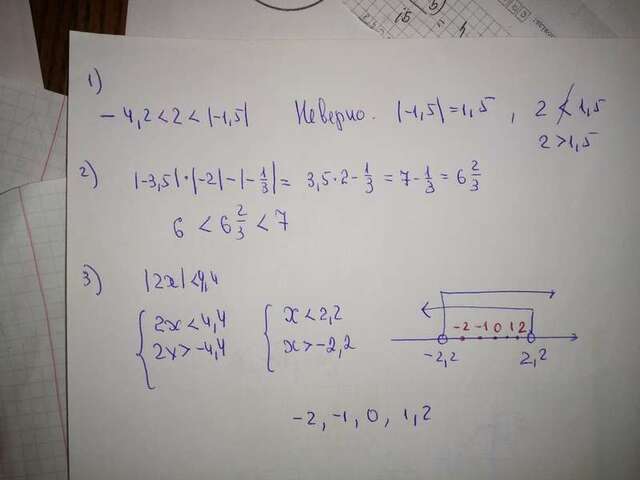 1)
- 4,2 < 2 < |-1,5| Неверно. |-1,5| = 1,5 , 2 ≮ 1,5
2 > 1,5
2)
|-3,5| · |-2| - |-1/3| = 3,5 · 2 - 1/3 = 7 - 1/3 = 6 2/3
6 < 6 2/3 < 7
3)
|2x| < 4,4
{ 2x < 4,4 { x < 2,2
2x > -4,4 x > -2,2
-2 -1 0 1 2
-2,2 2,2
-2, -1, 0, 1, 2